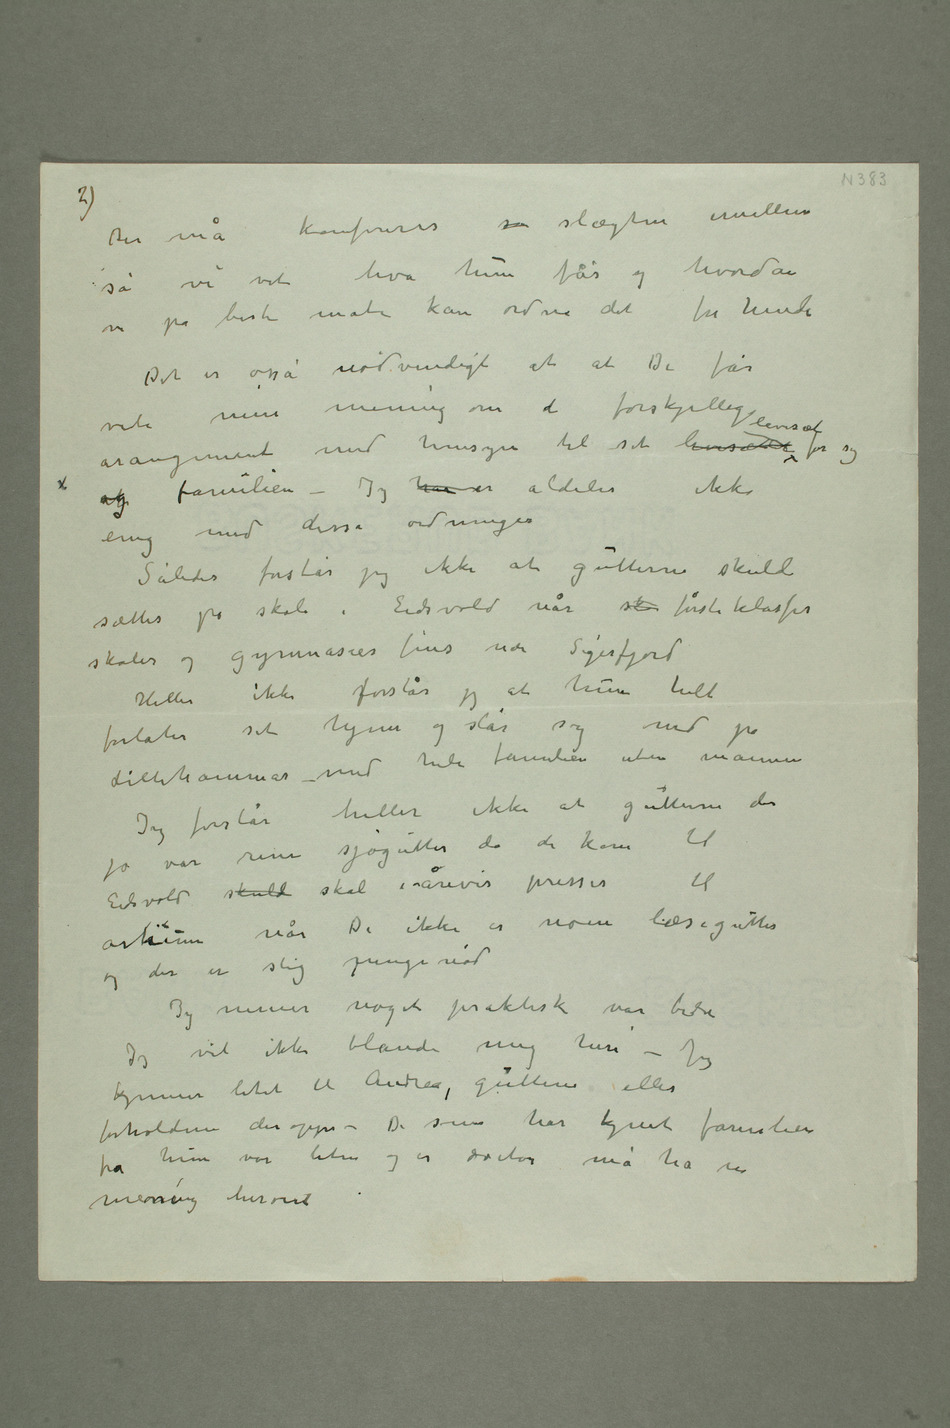 N 383
2)
Der må konfereres so slægten imellem
så vi vet hva hun får og hvordan
vi på beste måte kan ordne det for hende
Det er også nødvendigt at at De får
vite min mening om de forskjellige
arangement med hensyn til sit levesæt for sig
levesæt
og familien – Jeg har er aldeles ikke
x
enig med disse ordninger
Således forstår jeg ikke at gutterne skulde
sættes på skole i Eidsvold når sko første klasses
skoler og gymnasier fins nær Sigerfjord
Heller ikke forstår jeg at hun helt
forlater sit hjem og slår sig ned på
Lillehammer – med hele familien uten mannen
Jeg forstår heller ikke at gutterne der
jo var rene sjøgutter da de kom til
Eidsvold skulde skal i årevis presses til
artium når De ikke er noen læsegutter
og der er slig pengenød
Jeg mener noget praktisk var bedre
Jeg vil ikke blande mig heri – Jeg
kjenner litet til Andrea, gutterne eller
forholdene deroppe – De som har kjent familien
fra hun var liten og er doctor må ha en
mening herom